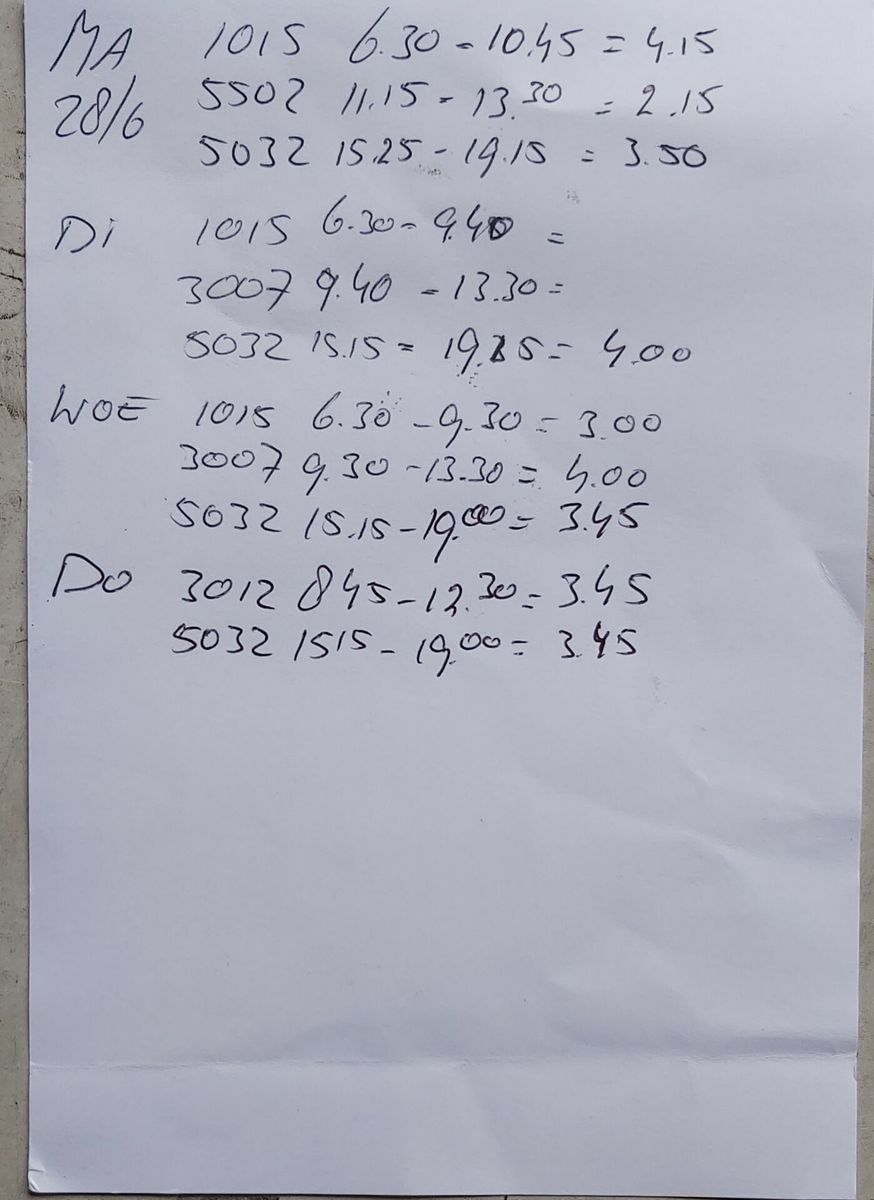 MA 1015 6.30 - 10.45 = 4.15
28/6 5502 11.15 - 13.30 = 2.15
5032 15.25 - 19.15 = 3.50
Di 1015 6.30 - 9.40 =
3007 9.40 - 13.30 =
5032 15.15 = 19.15 = 4.00
WOE 1015 6.30 - 9.30 = 3.00
3007 9.30 - 13.30 = 4.00
5032 15.15 - 19.00 = 3.45
Do 3012 845 - 12.30 = 3.45
5032 1515 - 19.00 = 3.45